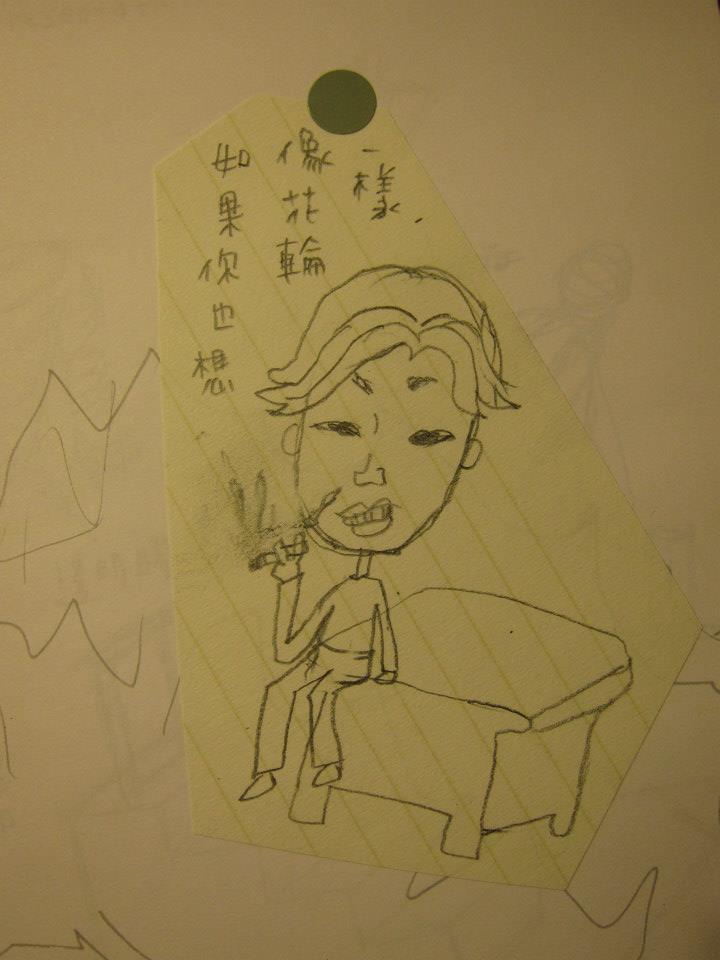 如果你也想
像花輪
一樣.